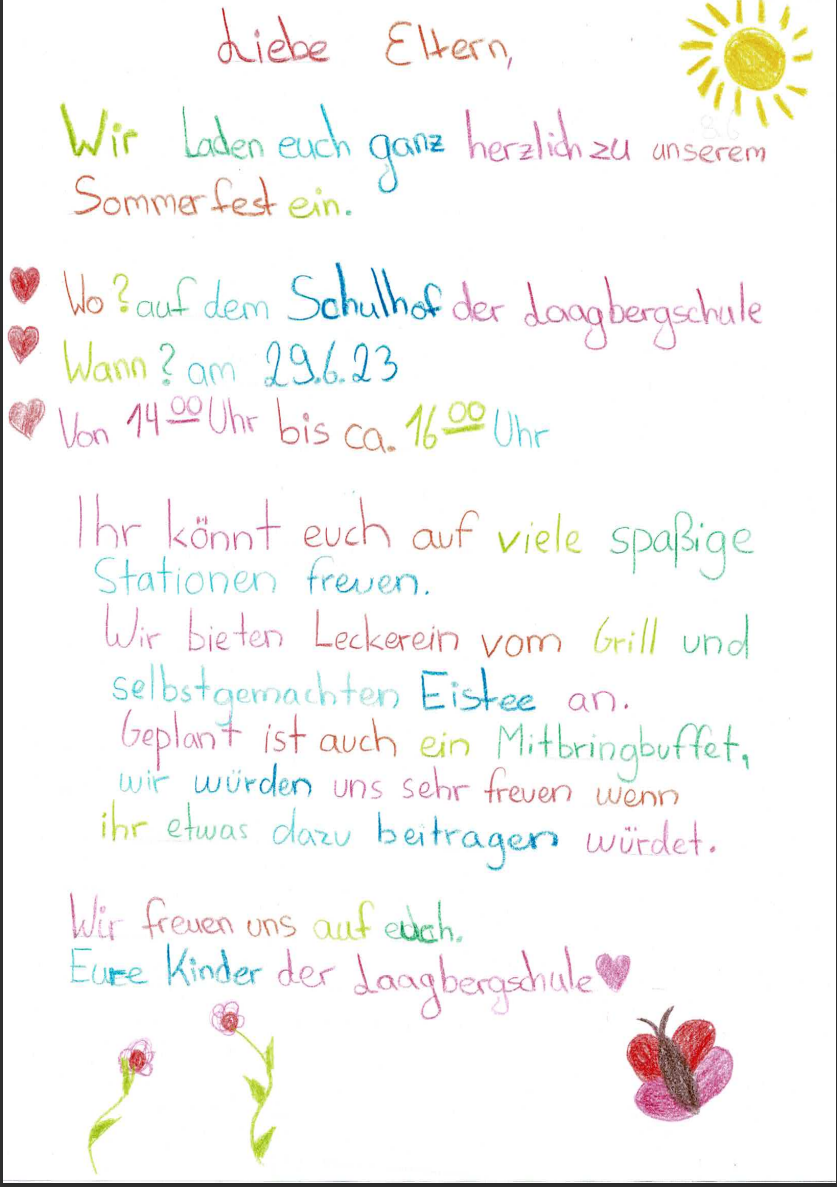 Liebe Eltern,
Wir laden euch ganz herzlich zu unserem
Sommerfest ein.
Wo? auf dem Schulhof der Laagbergschule
Wann? am 29.6.23
Von 14 00 Uhr bis ca. 16 00 Uhr
Ihr könnt euch auf viele spaßige
Stationen freuen.
Wir bieten Leckerein vom Grill und
selbstgemachten Eistee an.
Geplant ist auch ein Mitbringbuffet,
wir würden uns sehr freuen wenn
ihr etwas dazu beitragen würdet.
Wir freuen uns auf euch.
Eure Kinder der Laagbergschule